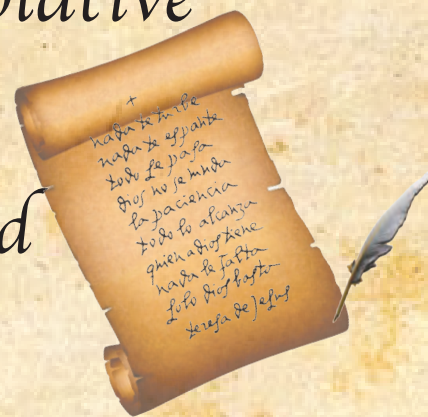 plative
d
+
nada te turbe
nada te espante
todo se pasa
dios no se muda
la paciencia
todo lo alcanza
quien a dios tiene
nada le falta
solo dios basta
teresa de Jesus